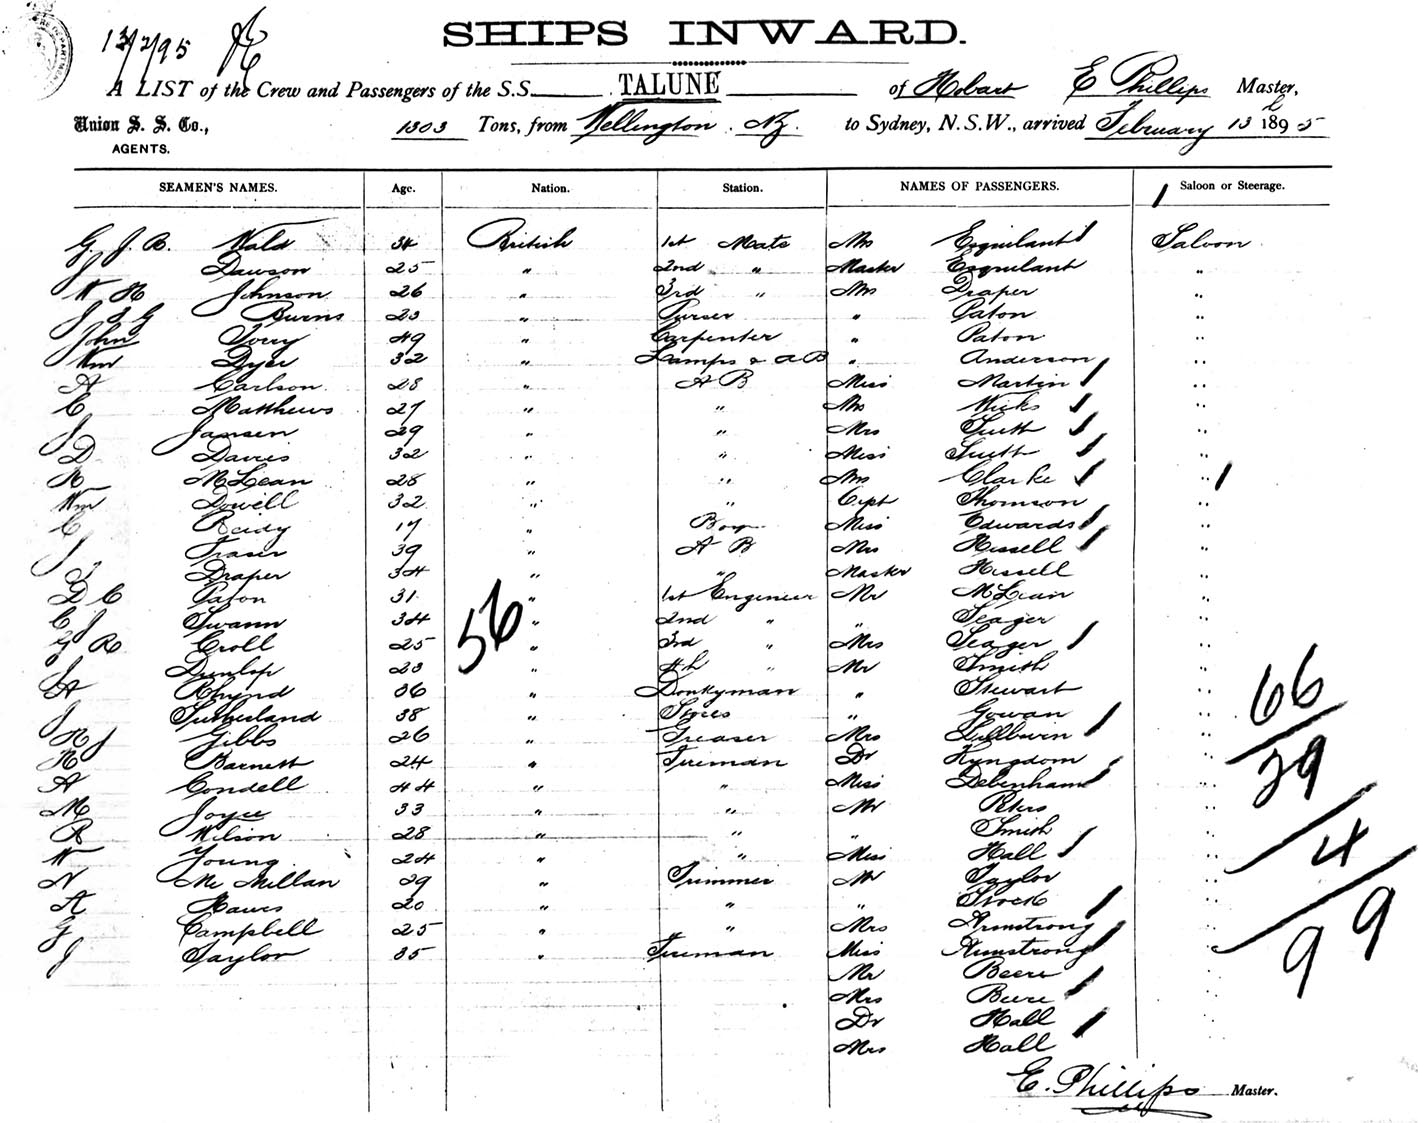 13/2/95
SHIPS INWARD.
A LIST of the Crew and Passengers of the S.S. TALUNE of Hobart E Phillips Master,
Union S. S. Co., 1303 Tons, from Wellington NZ. to Sydney, N.S.W., arrived February 13 1895
AGENTS.
SEAMEN'S NAMES. Age. Nation. Station. NAMES OF PASSENGERS. Saloon or Steerage.
G J. B. Wald 34 British 1st Mate Mrs Esquilant Saloon
J Dawson 25 " 2nd " Master Esquilant "
W H Johnson 26 " 3rd " Mrs Draper "
J S G Burns 23 " Purser " Paton "
John Tory 49 " Carpenter " Paton "
Wm Dyse 32 " Lamps & AB " Anderson "
A Carlson 28 " A B Miss Martin "
C Matthews 27 " " Mrs Wicks "
J Jansen 29 " " Mrs Tutt "
D Davies 32 " " Miss Tutt "
R McLean 28 " " Mrs Clarke "
Wm Dowell 32 " " Capt Thomson "
C Reidy 17 " Boy Miss Edwards "
J Fraser 39 " A B Mrs Kissell "
J Draper 34 " " Master Kissell "
D C Paton 31 " 1st Engineer Mr McLean "
C J Swann 34 " 2nd " " Seager "
G R Croll 25 " 3rd " Mrs Seager "
J Dunlop 23 " 4th " Mr Smith "
A Rhynd 36 " Donkyman " Stewart "
J Sutherland 38 " Stores " Gowan "
R J Gibbs 26 " Greaser Mrs "
R Barnett 24 " Fireman Dr Kyngdom "
A Condell 44 " " Miss Debenham "
M Joyce 33 " " Mr Peters "
R Wilson 28 " " " Smith "
W Young 24 " " Miss Hall "
N Mc Millan 29 " Trimmer Mr Taylor "
A Hawes 20 " " " Stock "
G Campbell 25 " " Mrs Armstrong "
J Taylor 35 " Fireman Miss Armstrong "
Mr Beere "
Mrs Beere "
Dr Hall "
Mrs Hall "
56
66
39
4
99
E. Phillips Master.